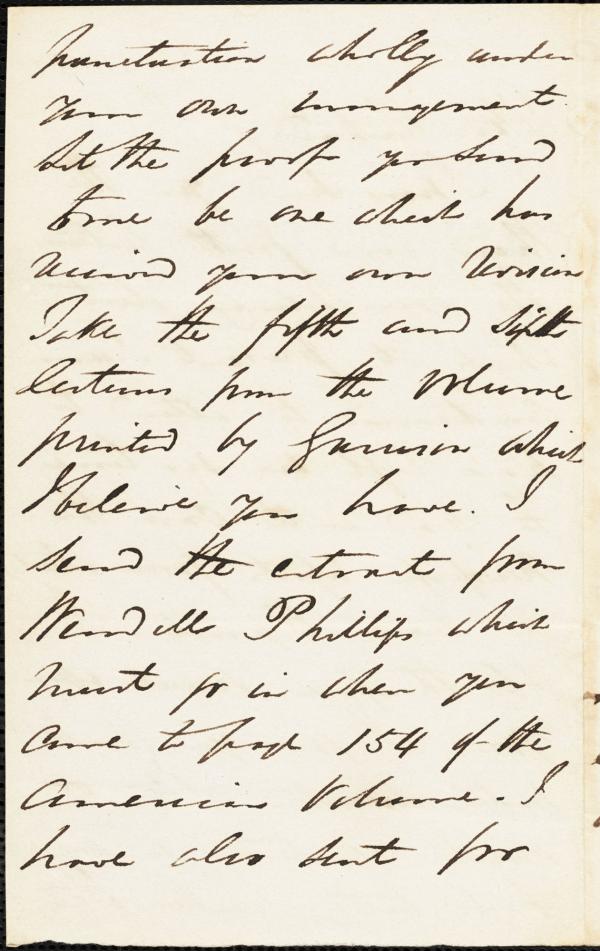 punctuation wholly under
your own management.
Let the proof you send
to me be one which has
received your own revision
Take the fifth and sixth
lectures from the volume
printed by Garrison which
I believe you have. I
send the extract from
Wendell Phillips which
must go in when you
come to page 154 of the
American Volume. I
have also sent for